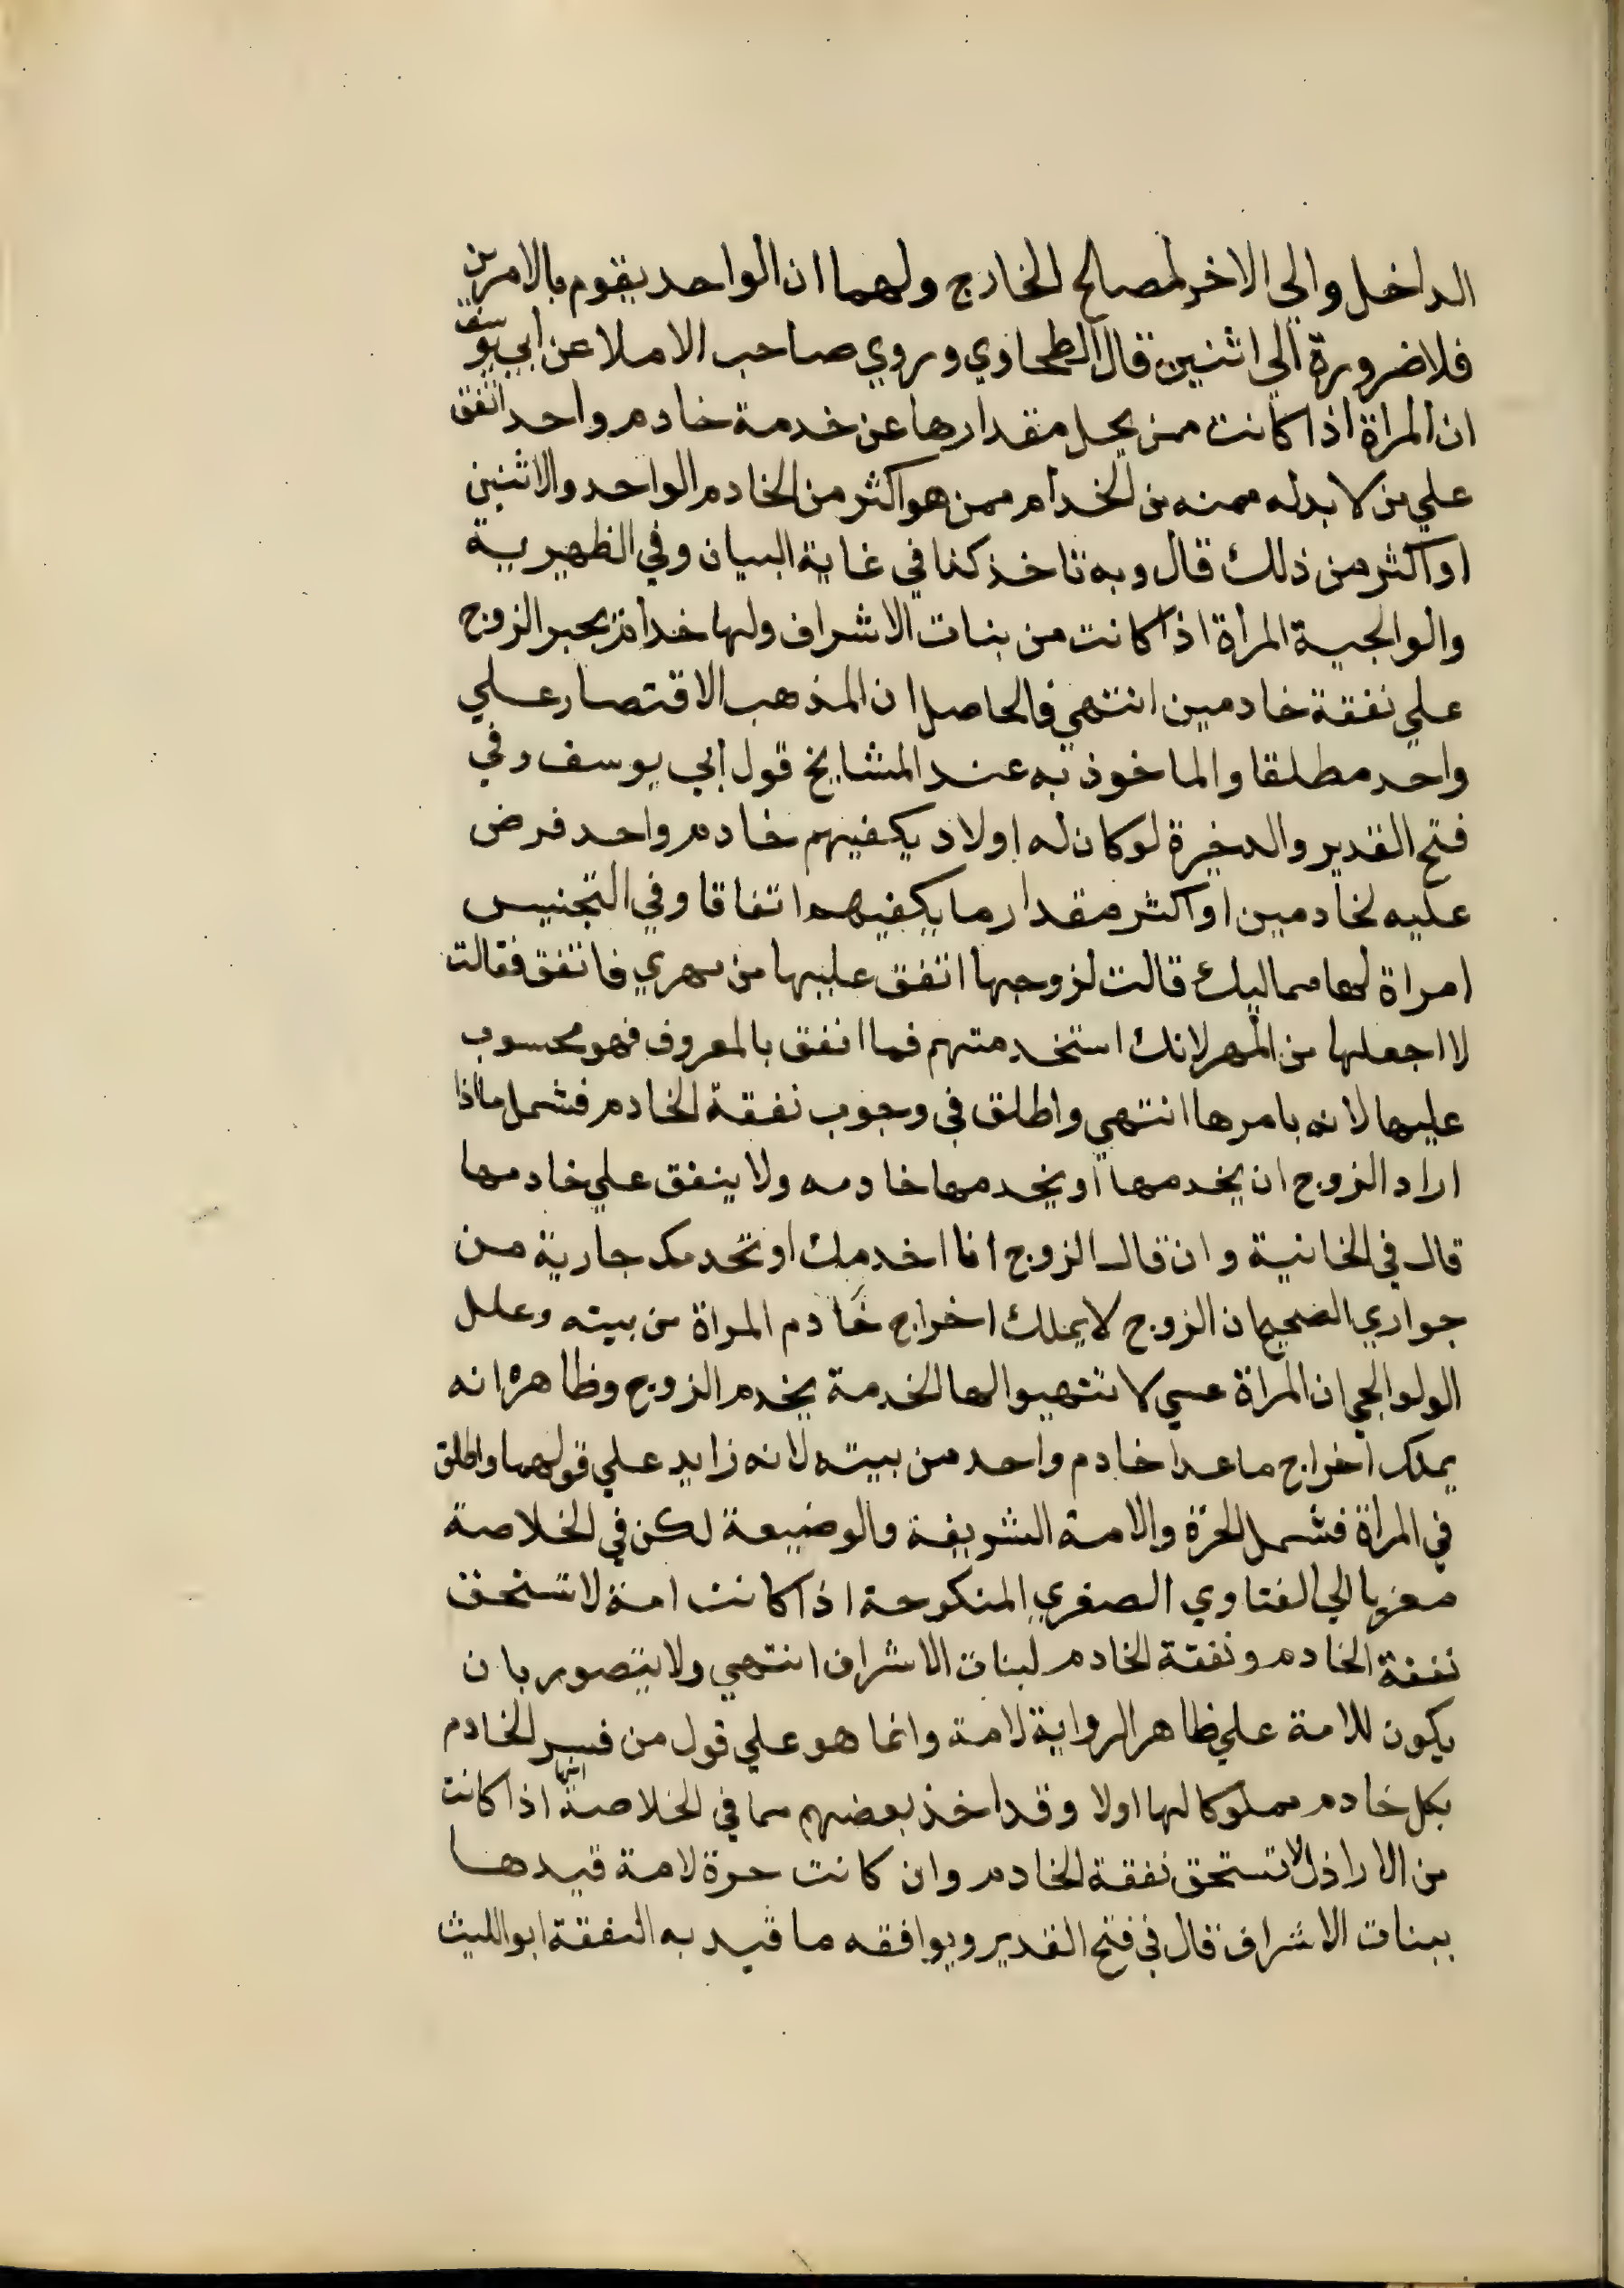 الداخل والي الاخر لمصالح الخارج ولهما ان الواحد يقوم بالامرين
فلا ضرورة الي اثنين قال الطحاوي وروي صاحب الاملا عن ابي يوسف
ان المراة اذا كانت ممن يجل مقدارها عن خدمة خادم واحد انفق
علي من لا بد له ممنه من الخدام ممن هو اكثر من الخادم الواحد والاثنين
او اكثر من ذلك قال وبه ناخذ كذا في غاية البيان وفي الظهيرية
والوالجية المرأة اذا كانت من بنات الاشراف ولها خدام يجبر الزوج
علي نفقة خادمين انتهي فالحاصل ان المذهب الاقتصار علي
واحد مطلقا والماخوذ به عند المشايخ قول ابي يوسف وفي
فتح القدير والدخيرة لو كان له اولاد يكفيهم خادم واحد فرض
عليه لخادمين او اكثر مقدار ما يكفيهم اتفاقا وفي التجنيس
امراة لها مماليك قالت لزوجها انفق عليها من مهري فانفق فقالت
لا اجعلها من المهر لانك استخدمتهم فما انفق بالمعروف فهو محسوب
عليها لانه بامرها انتهي واطلق في وجوب نفقة الخادم فشمل ما اذا
اراد الزوج ان يخدمها او يخدمها خادمه ولا ينفق علي خادمها
قال في الخانية وان قال الزوج انا اخدمك او تخدمك جارية من
جواري الصحيح ان الزوج لا يملك اخراج خادم المراة من بيته وعلل
الولوالجي ان المراة عسي لا تتهيوا لها الخدمة بخدم الزوج وظاهره انه
يملك اخراج ما عدا خادم واحد من بيته لانه زايد علي قولهما واطلق
في المراة فشمل الحرة والامة الشريفة والوضيعة لكن في الخلاصة
معزيا الي الفتاوي الصغري المنكوحة اذا كانت امة لا تستحق
نفقة الخادم ونفقة الخادم لبنات الاشراف انتهي ولا يتصور بان
يكون للامة علي ظاهر الرواية لامة وانما هو علي قول من فسر الخادم
بكل خادم مملوكا لها اولا وقد اخذ بعضهم مما في الخلاصة انها اذا كانت
من الاراذل لا تستحق نفقة الخادم وان كانت حرة لامة قيدها
ببنات الاشراف قال في فتح القدير ويوافقه ما قيد به النفقة ابو الليث